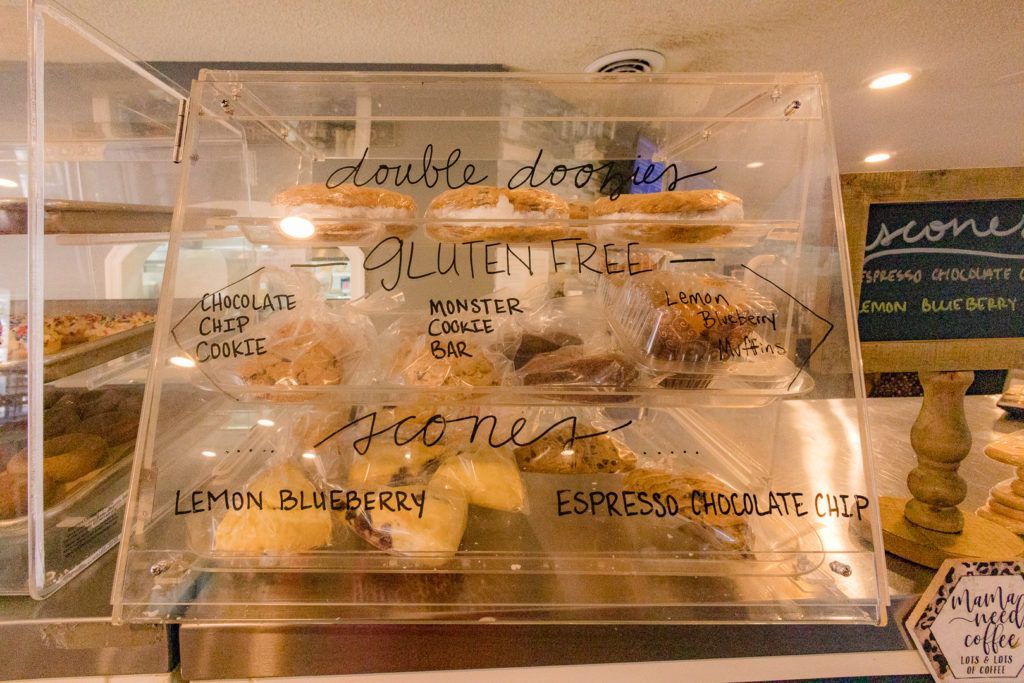 double doozies
GLUTEN FREE
CHOCOLATE
CHIP
COOKIE
MONSTER
COOKIE
BAR
Lemon
Blueberry
Muffins
scones
LEMON BLUEBERRY
ESPRESSO CHOCOLATE CHIP
scones
ESPRESSO CHOCOLATE C
LEMON BLUEBERRY
mama
need
coffee
LOTS & LOTS
OF COFFEE